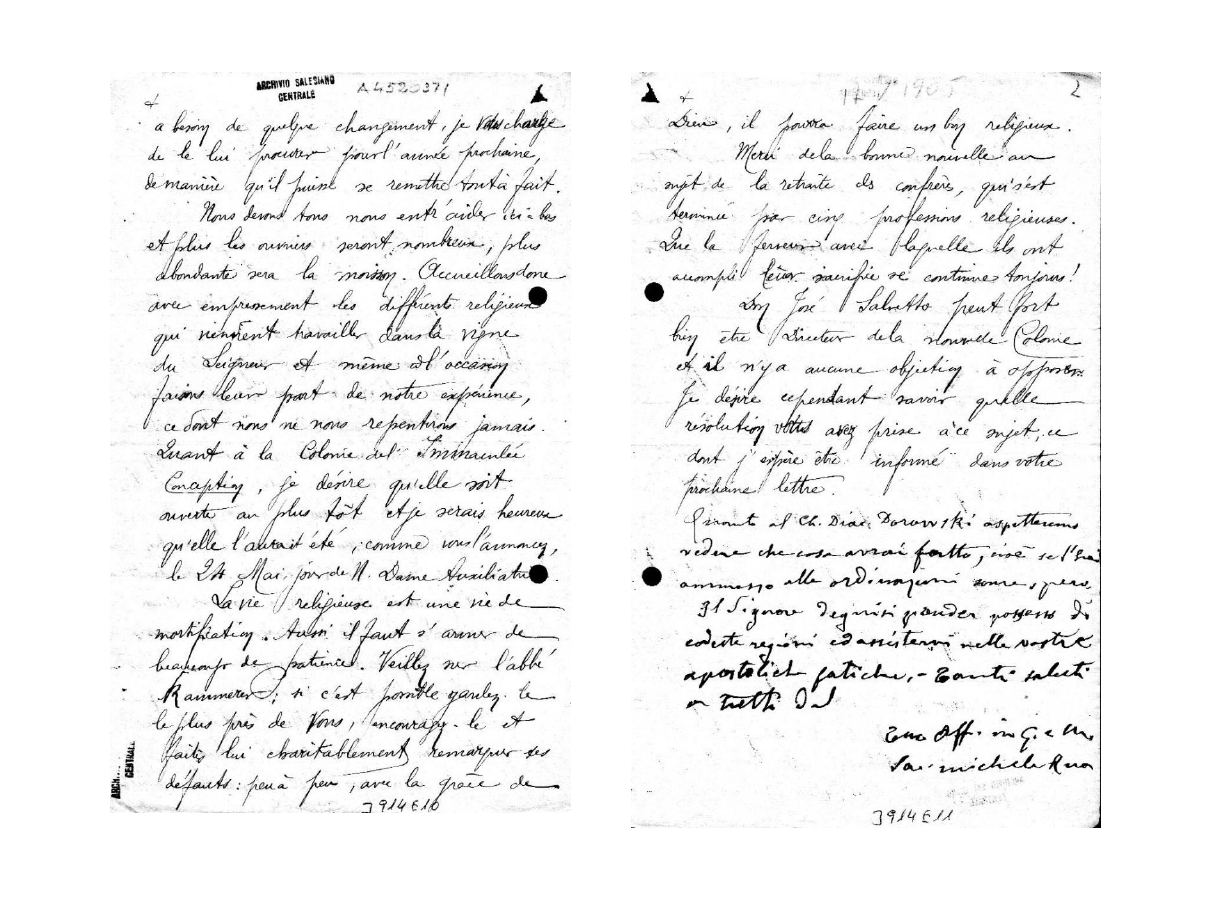 ARCHIVIO SALESIANO
CENTRALE
A4520371
a besoin de quelque changement, je Vous charge
de le lui procurer pour l'année prochaine,
de manière qu'il puisse se remettre tout à fait.
Nous devons tous nous entr'aider ici-bas
et plus les ouvriers seront nombreux, plus
abondante sera la moisson. Accueillons donc
avec empressement les différents religieux
qui viennent travailler dans la vigne
du Seigneur et même à l'occasion
faisons leur part de notre expérience,
ce dont nous ne nous repentirons jamais.
Quant à la Colonie de l'Immaculée
Conception, je désire qu'elle soit
ouverte au plus tôt et je serais heureux
qu'elle l'aurait été, comme vous l'annoncez,
le 24 Mai, jour de N. Dame Auxiliatrice
La vie religieuse est une vie de
mortification. Aussi il faut s'armer de
beaucoup de patience. Veillez sur l'abbé
Kammerer; si c'est possible gardez-le
le plus près de Vous, encouragez-le et
faites lui charitablement remarquer ses
défauts: peu à peu, avec la grâce de
ARCH....
CENTRALE
3914E10
1905
2
Dieu, il pourra faire un bon religieux.
Merci de la bonne nouvelle au
sujet de la retraite des confrères, qui s'est
terminée par cinq professions religieuses.
Que la ferveur avec laquelle ils ont
accompli leur sacrifice se continue toujours!
Don José Salvetto peut fort
bien être Directeur de la nouvelle Colonie
et il n'y a aucune objection à opposer.
Je désire cependant savoir quelle
résolution vous avez prise à ce sujet, ce
dont j'espère être informé dans votre
prochaine lettre.
Quanto al Ch. Diac. Dorowski aspetteremo
vedere che cosa avrai fatto, cioè se l'avrai
ammesso alle ordinazioni come spero.
Il Signore degnisi prender possesso di
codeste regioni ed assistervi nelle vostre
apostoliche fatiche. - Tanti saluti
a tutti dal
Tuo Aff. in G. e M.
Sac. Michele Rua
3914E11